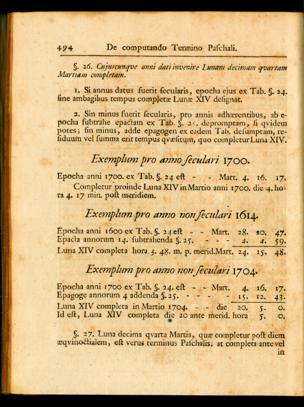 494 De computando Termino Paschali.
§. 26. Cujuscunque anni dati invenire Lunam decimam qvartam
Martiam completam.
1. Si annus datus fuerit secularis, epocha ejus ex Tab. §. 24.
sine ambagibus tempus completæ Lunæ XIV designat.
2. Sin minus fuerit secularis, pro annis adhærentibus, ab e-
pocha subtrahe epactam ex Tab. §. 25. depromptam, si qvidem
potes; sin minus, adde epagogen ex eadem Tab. desumptam, re-
siduum vel summa erit tempus qvæsitum, quo completur Luna XIV.
Exemplum pro anno seculari 1700.
Epocha anni 1700. ex Tab. §. 24 est - - Mart. 4. 16. 17.
Completur proinde Luna XIV in Martio anni 1700. die 4. ho-
ra 4. 17 min. post meridiem.
Exemplum pro anno non seculari 1614.
Epocha anni 1600 ex Tab. §. 24 est - - Mart. 28. 10. 47.
Epacta annorum 14. subtrahenda §. 25. - - - - 4. 4. 59.
Luna XIV completa hora 5. 48. m. p. merid. Mart. 24. 15. 48.
Exemplum pro anno non seculari 1704.
Epocha anni 1700 ex Tab. §. 24. est - - Mart. 4. 16. 17.
Epagoge annorum 4 addenda §. 25. - - - - 15. 12. 43.
Luna XIV completa in Martio 1704. - - die 20. 5. 0.
Id est, Luna XIV completa die 20 ante merid. hora 5. 0.
§. 27. Luna decima qvarta Martia, quæ completur post diem
æqvinoctialem, est verus terminus Paschalis; at completa ante vel
in